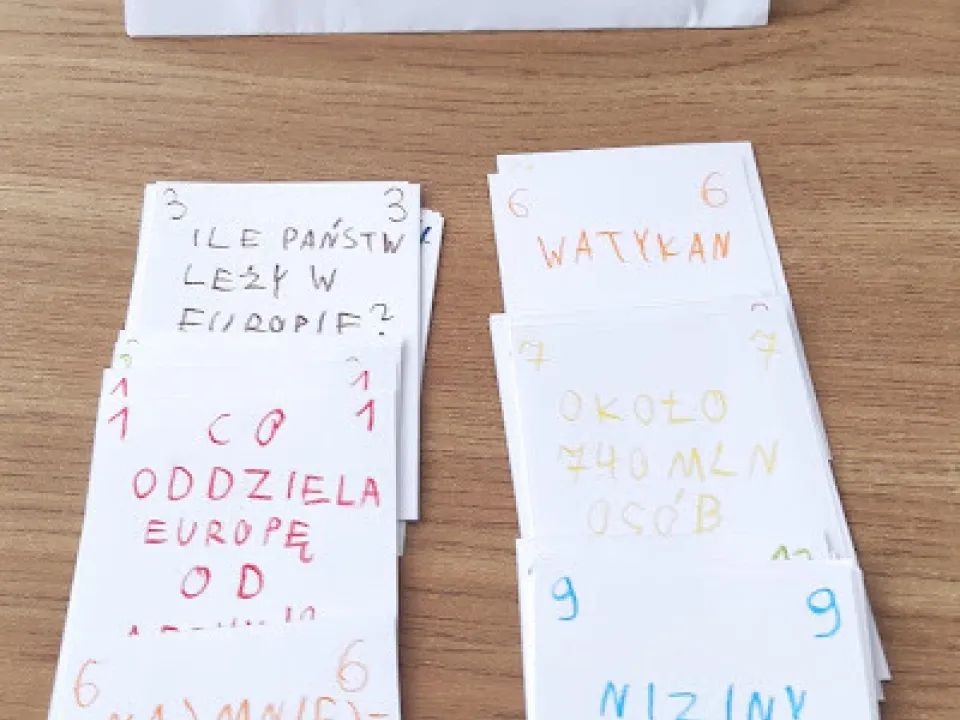 3 3
ILE PAŃSTW
LEŻY W
EUROPIE?
1 1
1 1
CO
ODDZIELA
EUROPĘ
OD
6 6
NAJMNIEJ-
6 6
WATYKAN
7 7
OKOŁO
740 MLN
OSÓB
9 9
NIZINY